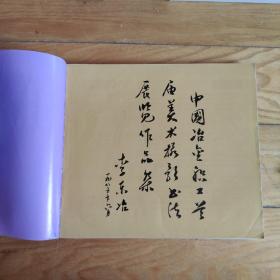 中国冶金职工首
届美术摄影书法
展览作品集
李东冶
一九八六年六月